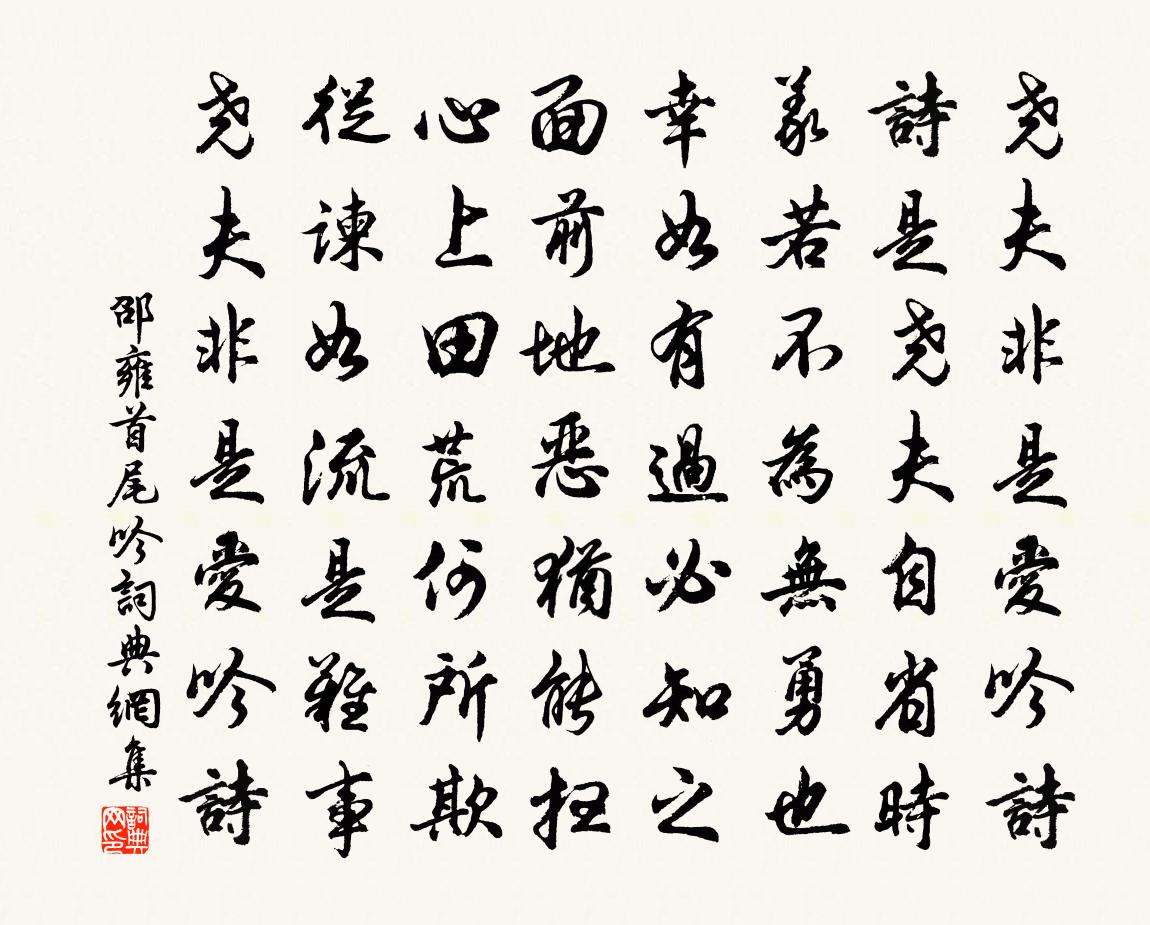 尧夫非是愛吟詩
詩是尧夫自省時
義若不為無勇也
幸如有過必知之
面前地惡猶能掃
心上田荒何所欺
從諫如流是難事
尧夫非是愛吟詩
邵雍首尾吟詞典網集
詞典网印